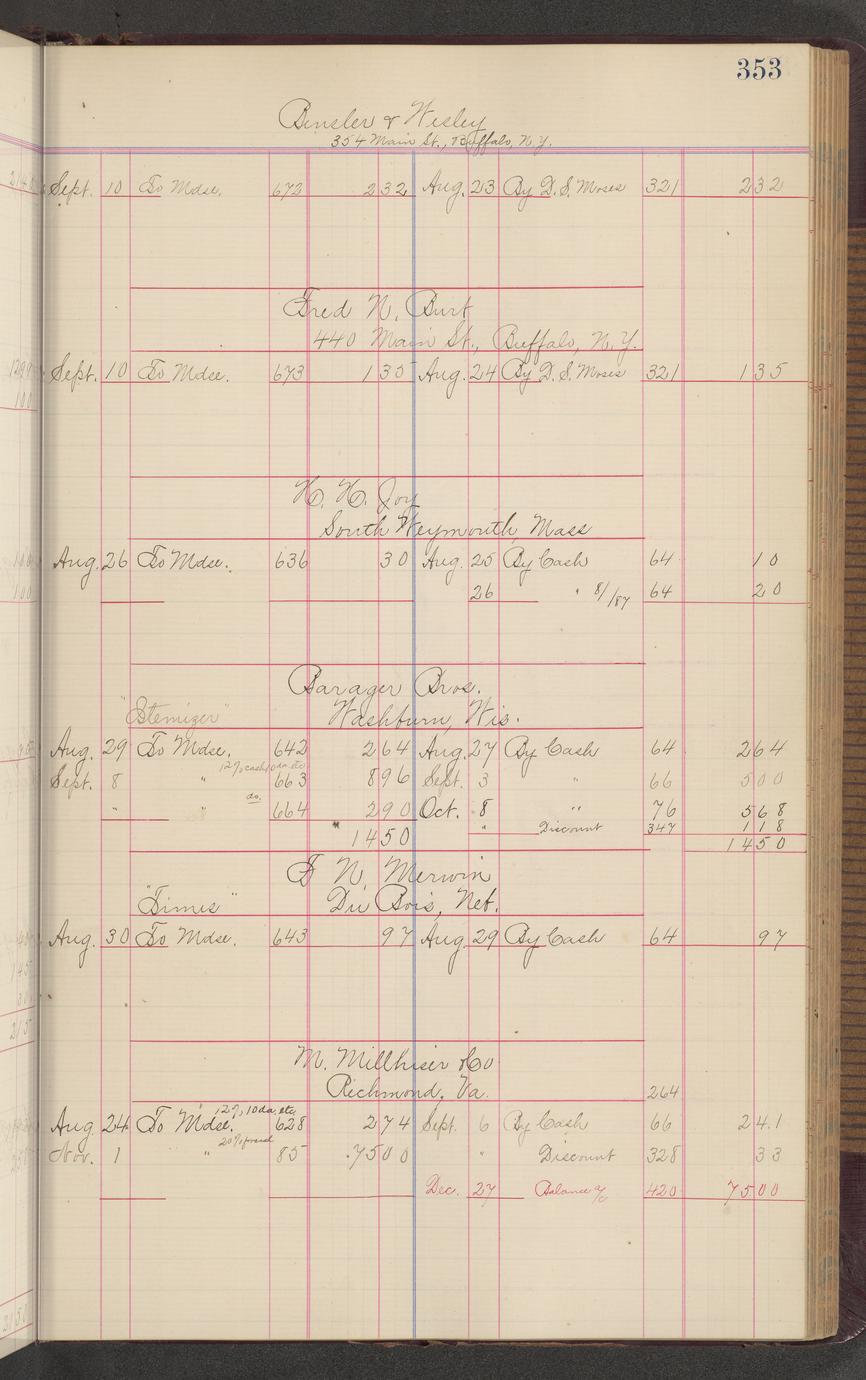 353
Binsler & Wesley
354 Main St., Buffalo, N.Y.
Sept. 10 To Mdse. 672 232 Aug. 23 By D. S. Moses 321 232
Fred N. Burt
440 Main St., Buffalo, N.Y.
Sept. 10 To Mdse. 673 135 Aug. 24 By D. S. Moses 321 135
H. H. Joy
South Weymouth, Mass
Aug. 26 To Mdse. 636 30 Aug. 25 By Cash 64 10
26 " 8/1/87 64 20
Barager Bros.
"Itemizer" Washburn, Wis.
Aug. 29 To Mdse. 642 264 Aug. 27 By Cash 64 264
12%, cash 10 da. etc
Sept. 8 " 663 896 Sept. 3 " 66 500
" " do. 664 290 Oct. 8 " 76 568
1450 " Discount 347 118
1450
F N. Merwin
"Times" Du Bois, Neb.
Aug. 30 To Mdse. 643 97 Aug. 29 By Cash 64 97
M. Millhiser & Co
Richmond, Va. 264
12%, 10 da. etc
Aug 24 To Mdse. 628 274 Sept. 6 By Cash 66 241
Nov. 1 " 85 7500 " Discount 328 33
Dec. 27 Balance a/c 420 7500